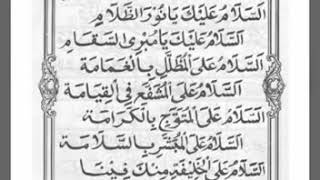 اَلسَّلَامُ عَلَيْكَ يَا نُورَ الظَّلَامِ
اَلسَّلَامُ عَلَيْكَ يَا مُبْرِئَ السَّقَامِ
اَلسَّلَامُ عَلَى الْمُظَلَّلِ بِالْغَمَامَةِ
اَلسَّلَامُ عَلَى الْمُشَفَّعِ فِي الْقِيَامَةِ
اَلسَّلَامُ عَلَى الْمُتَوَّجِ بِالْكَرَامَةِ
اَلسَّلَامُ عَلَى الْمُبَشِّرِ بِالسَّلَامَةِ
اَلسَّلَامُ عَلَى الْخَلِيفَةِ مِنْكَ فِينَا